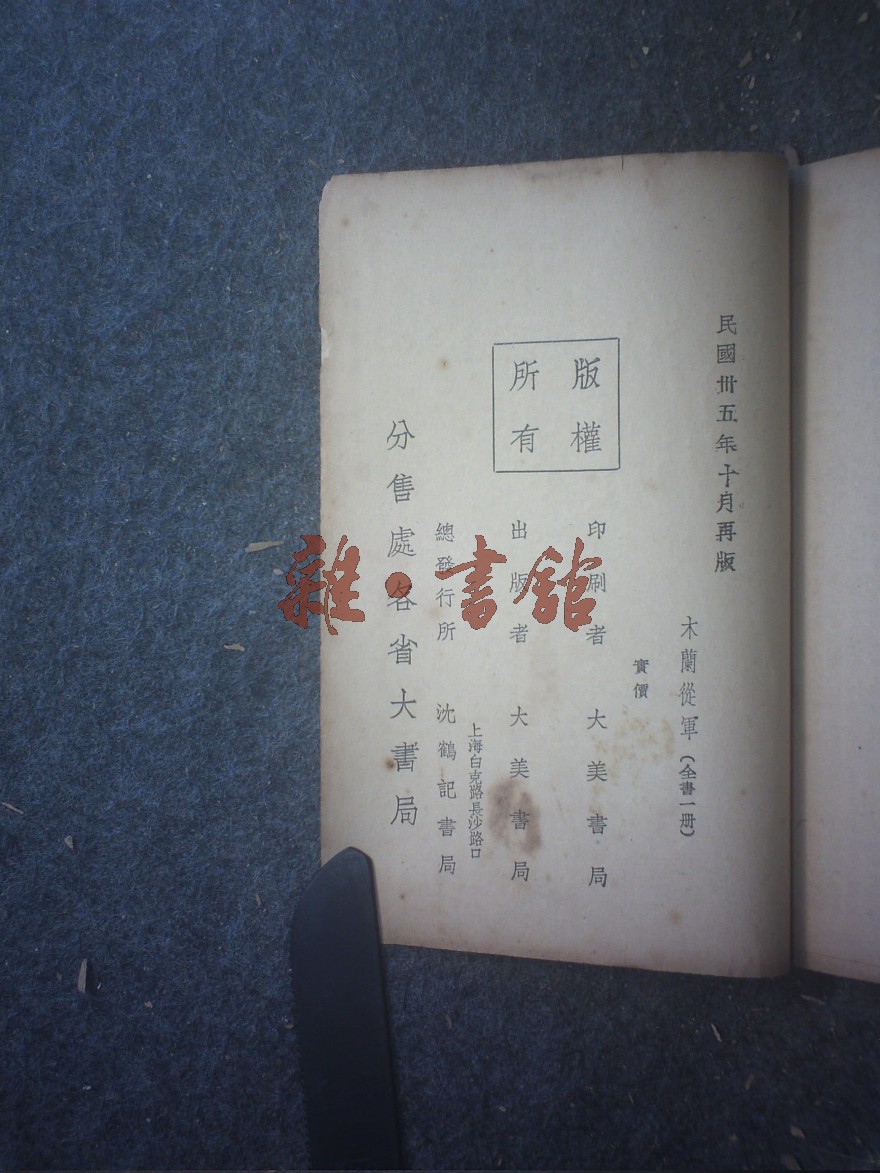 民國卅五年十月再版
木蘭從軍（全書一册）
實價
版權所有
印刷者 大美書局
出版者 大美書局
上海白克路長沙路口
總發行所 沈鶴記書局
分售處各省大書局
雜·書館